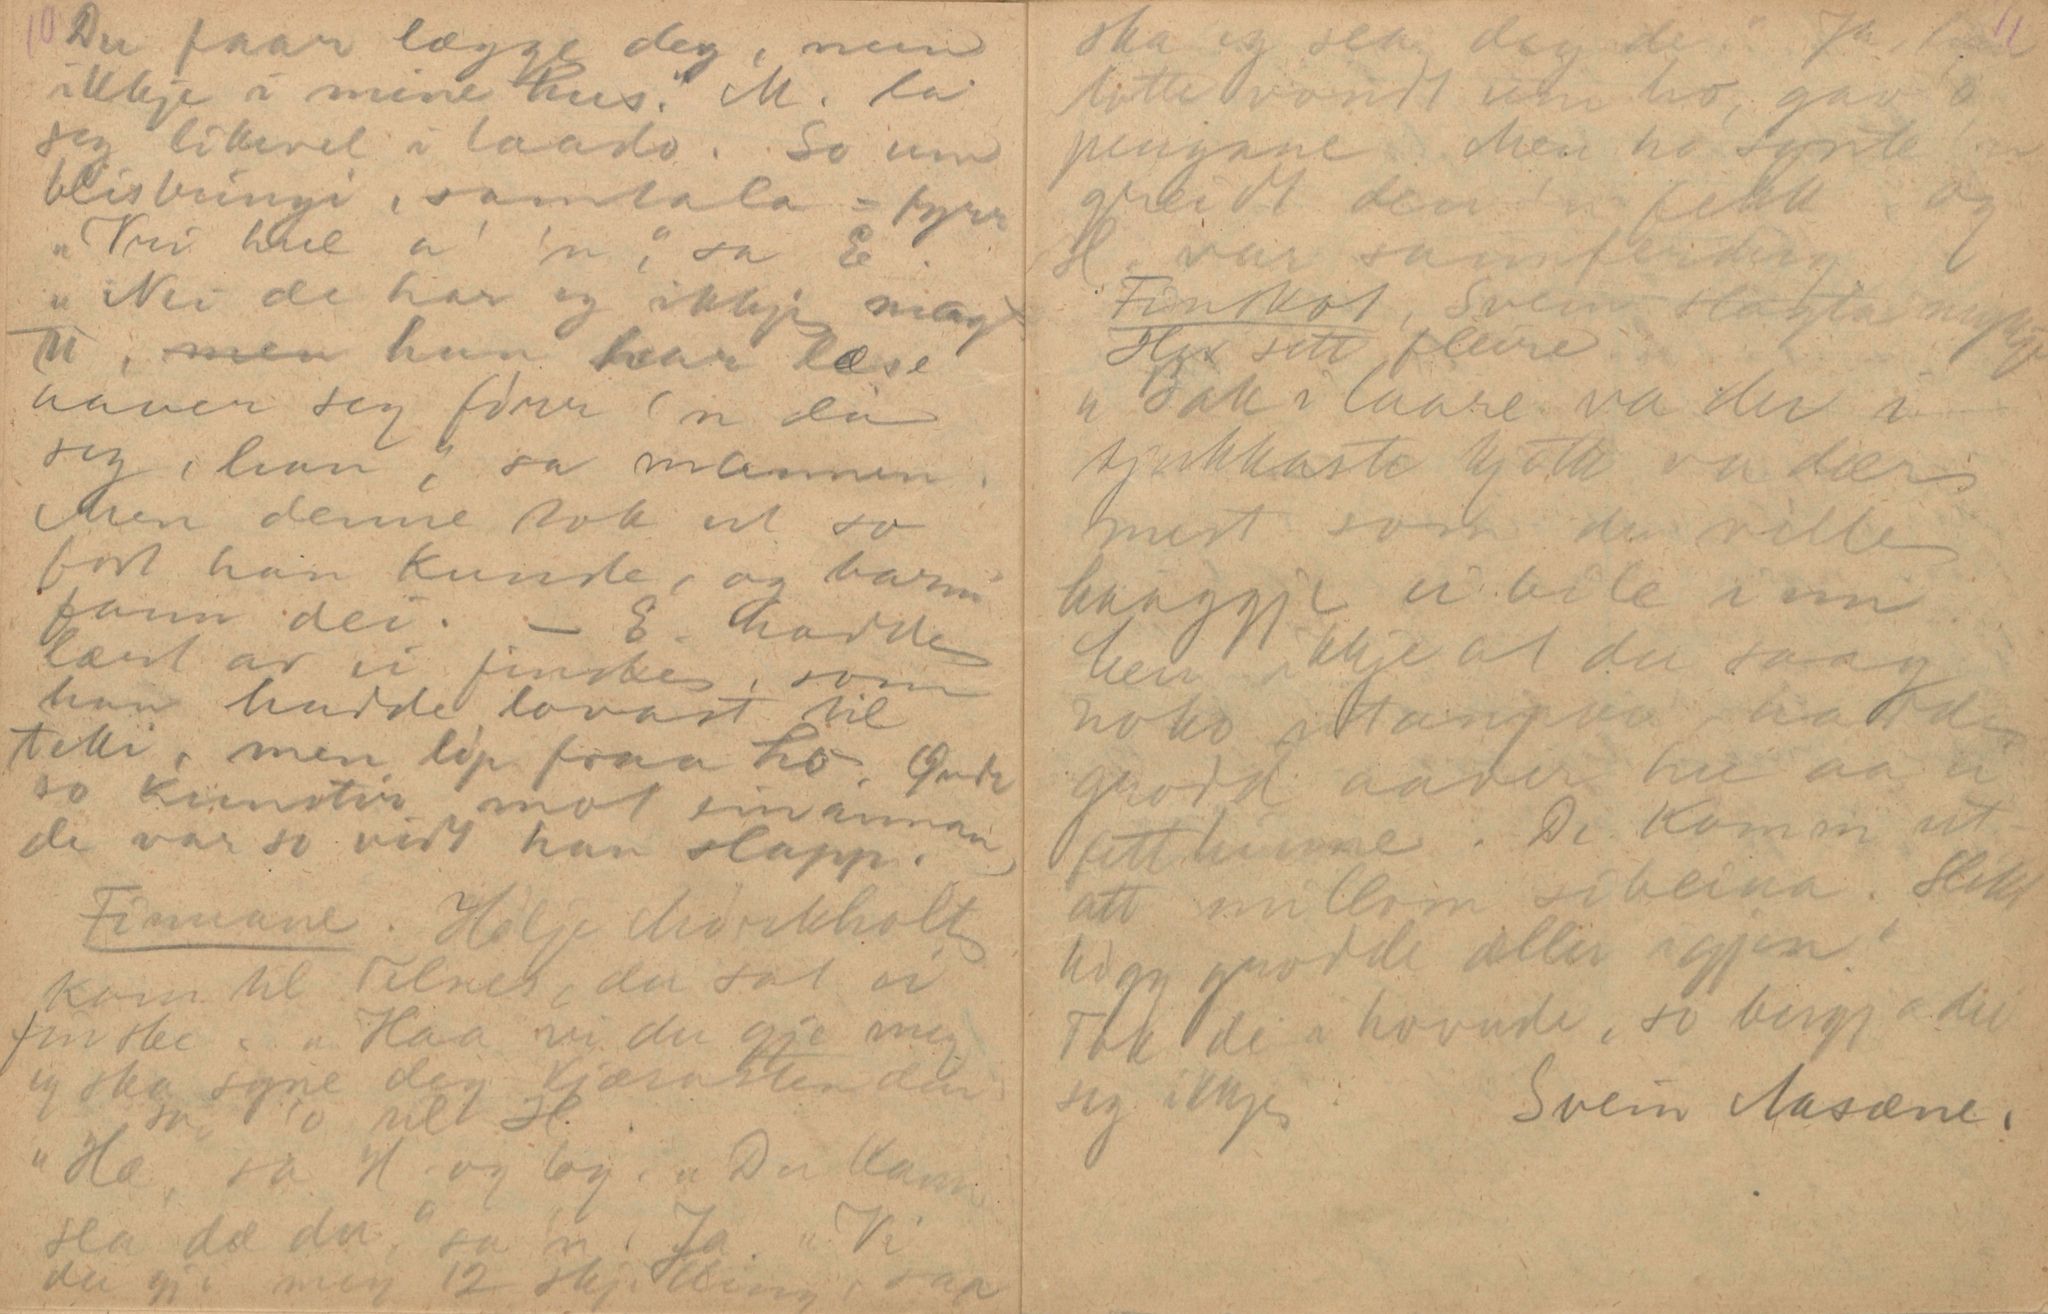 10
Du faar lægge deg, men
ikkje i mine hus." M. la
seg likevel i laado. So um
blisbringi, samtala = fyrr
"Vri hue a' 'n," sa E.
"Nei de har eg ikkje magt
til, men han har læse
aaver seg fórr 'n la
seg, han," sa mannen.
Men denne tok ut so
fort han kunde, og barni
fann dei. — E. hadde
lært av ei finske, som
han hadde lovast til
tekki, men lóp fraa ho.
so kunstir mot einannan
de var so vidt han slapp.
Finnane. Hólje Mórkholt
kom til Telnes, der sat ei
finske. "Haa vi du gje meg
eg ska syne deg kjærasten din
sa 'o til H.
"Hæ, sa H og log. "Du kann
sla dæ du," sa 'n. Ja. "Vi
du gje meg 12 skjelling, saa
11
ska eg sla deg de." Ja,
totte vondt um ho, gav 'o
pengane. Men ho synte 'n
greidt den 'n fekk og
H. var samferdig
Finskot, Svein slagta
Hev sett fleire
"Bak i laare va der i
tjukkaste kjøtt va dær
mest som du ville
haaggje ei bile inn
hen ikkje at du saag
noko i , hadde
grodd aaver hu aa ei
fetthinne. De komm ut-
att millom sibeina. Slikt
hógg grodde aller igjen."
Tok de i hovude, so berga dei
seg ikkje
Svein Aasæne.